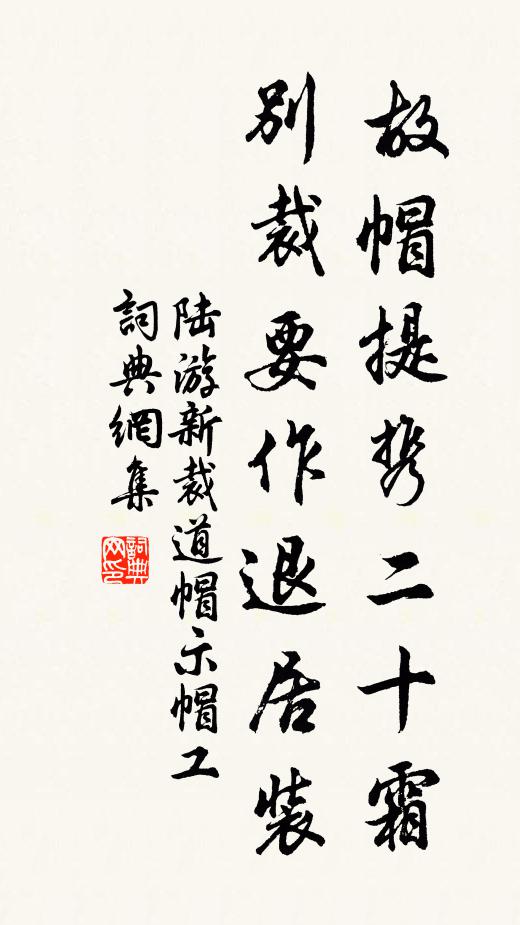 故帽提携二十霜
别裁要作退居装
陆游新裁道帽示帽工
詞典網集
詞典
网印